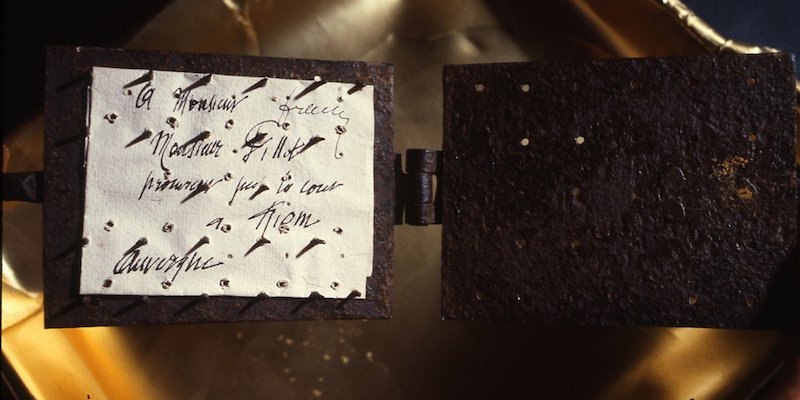 A Monsieur
Monsieur Fillot
procureur la cour
a Riom
Auvergne